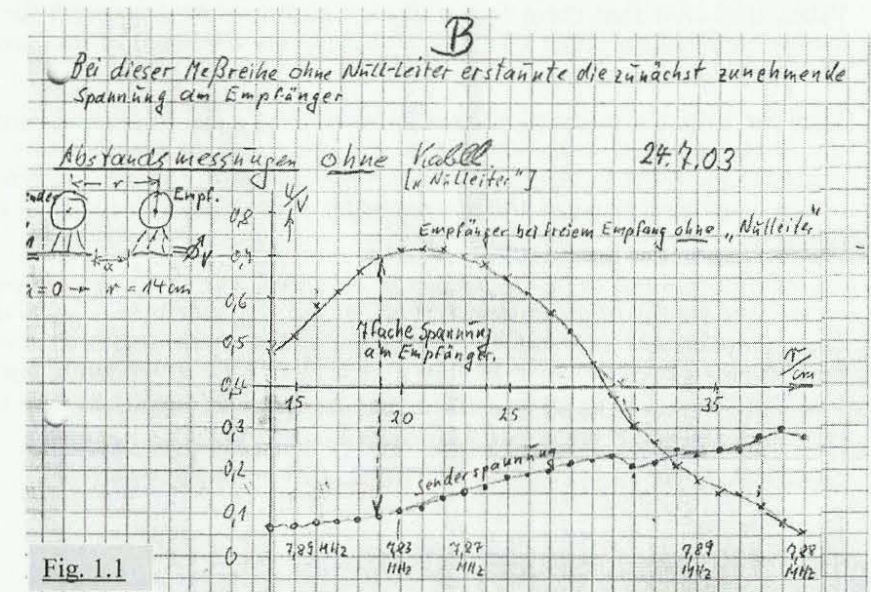 B
Bei dieser Meßreihe ohne Null-Leiter erstaunte die zunächst zunehmende
Spannung am Empfänger
Abstandsmessungen ohne Kabel
["Nulleiter"]
24.7.03
r
Empf.
U/V
0,8
Empfänger bei freiem Empfang ohne "Nulleiter"
a
V
0,7
a = 0 → r = 14 cm
0,6
7fache Spannung
am Empfänger.
0,5
r/cm
0,4
15
20
25
35
0,3
0,2
Senderspannung
0,1
0
7,85 MHz
7,83 MHz
7,87 MHz
7,89 MHz
7,88 MHz
Fig. 1.1